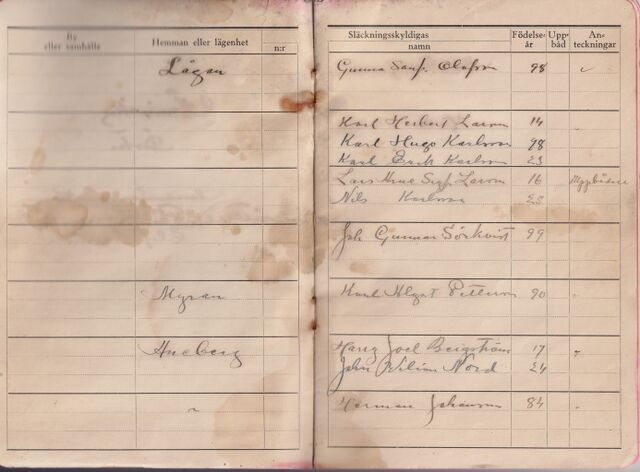 By
eller samhälle
Hemman eller lägenhet
n:r
Lågan
Myran
"
Släckningsskyldigas
namn
Födelse-
år
Upp-
båd
An-
teckningar
Gunnar Olofsson 98 "
Karl Herbert Larson 14
Karl Hugo Karlsson 98
Karl Erik Karlsson 23
Lars Arne Larson 16
Nils Karlsson 23
Joh Gunnar Sörkvist 99
Karl Petterson 90 "
Harry Joel Bergström 17 "
John Vilim Nord 24
Herman Johansson 84 "